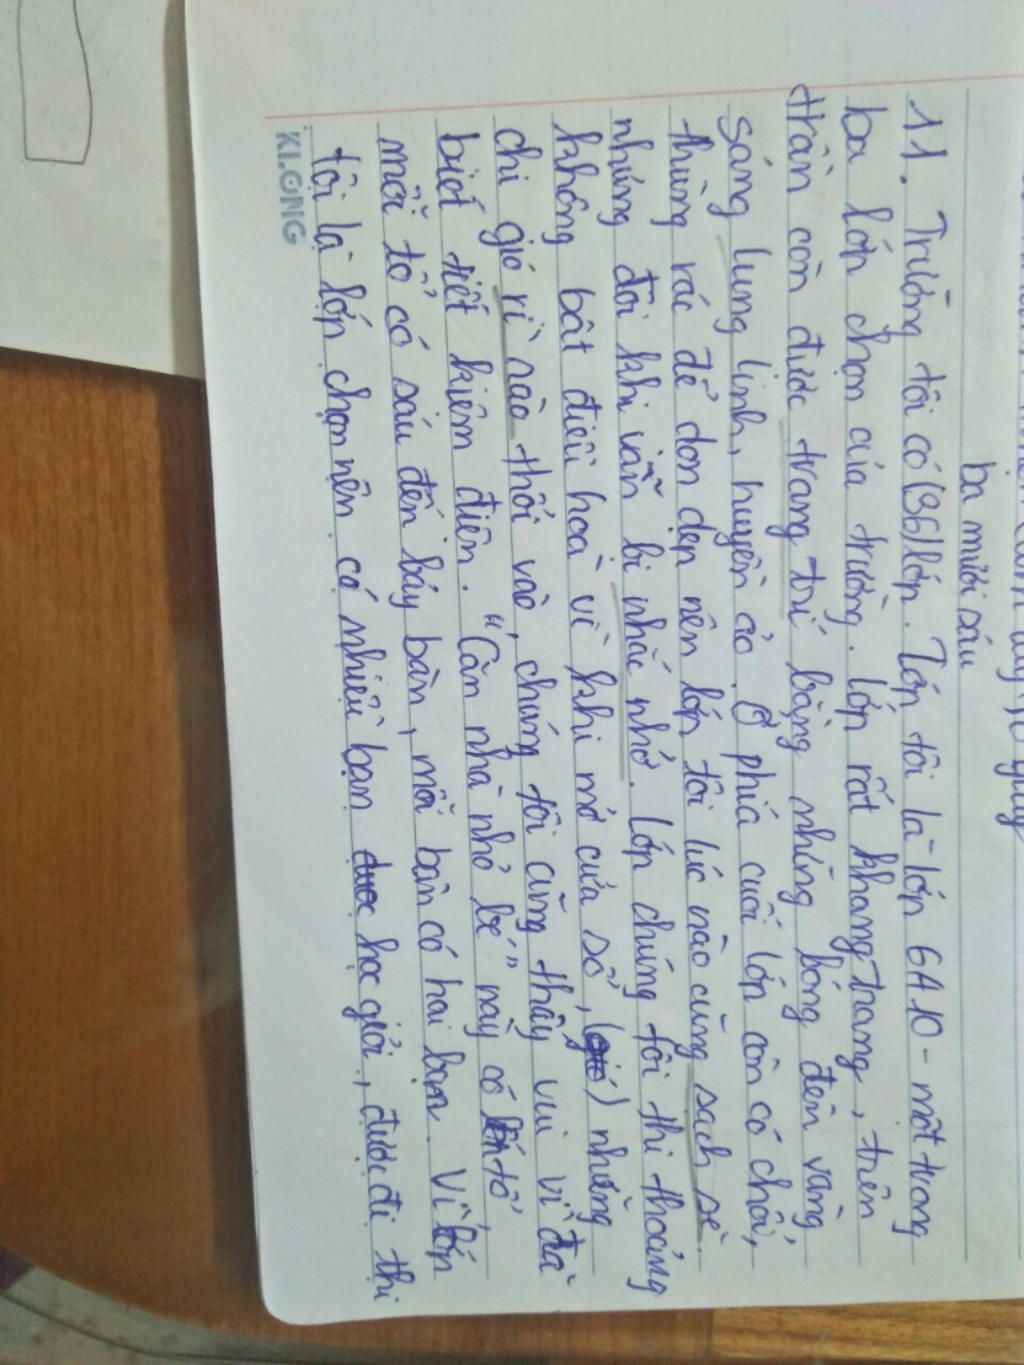 ba mươi sáu
11. Trường tôi có (36) lớp. Lớp tôi là lớp 6A10 - một trong
ba lớp chọn của trường. Lớp rất khang trang, trên
trần còn được trang trí bằng những bóng đèn vàng
sáng lung linh, huyền ảo. Ở phía cuối lớp còn có chổi,
thùng rác để dọn dẹp nên lớp tôi lúc nào cũng sạch sẽ
nhưng đôi khi vẫn bị nhắc nhở. Lớp chúng tôi thi thoảng
không bật điều hoà vì khi mở cửa sổ, (gió) những
chị gió rì rào thổi vào, chúng tôi cũng thấy vui vì đã
biết tiết kiệm điện. "Căn nhà nhỏ bé" này có tổ,
mỗi tổ có sáu đến bảy bàn, mỗi bàn có hai bạn. Vì lớp
tôi là lớp chọn nên có nhiều bạn được học giỏi, được đi thi
KLONG